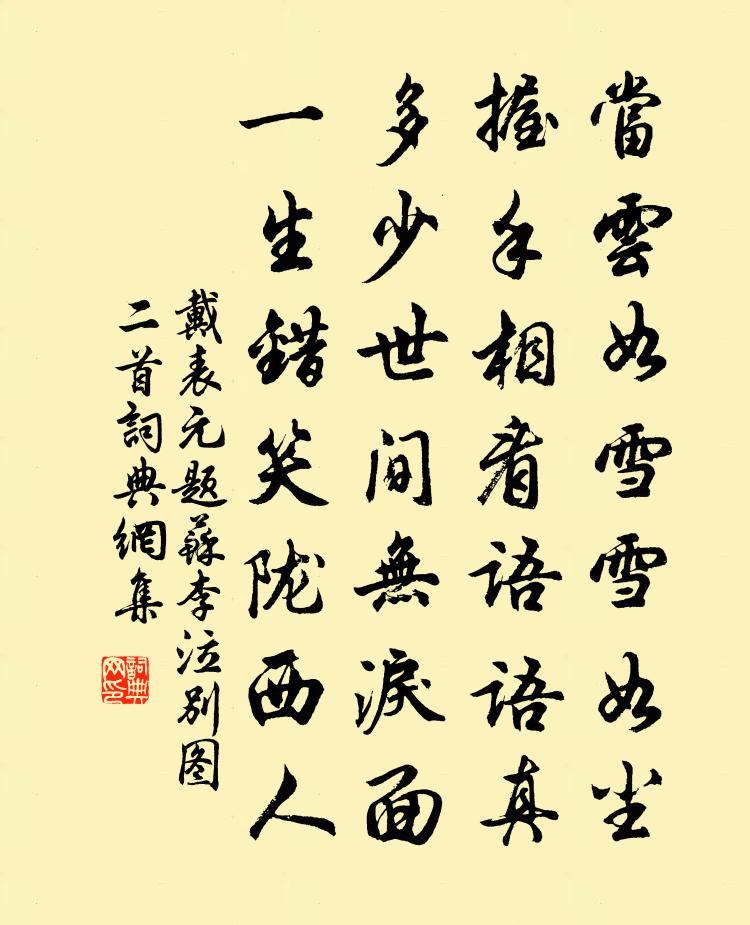 當雲如雪雪如尘
握手相看語語真
多少世间無淚面
一生錯笑陇西人
戴表元题蘇李泣别图
二首詞典網集
詞典網印